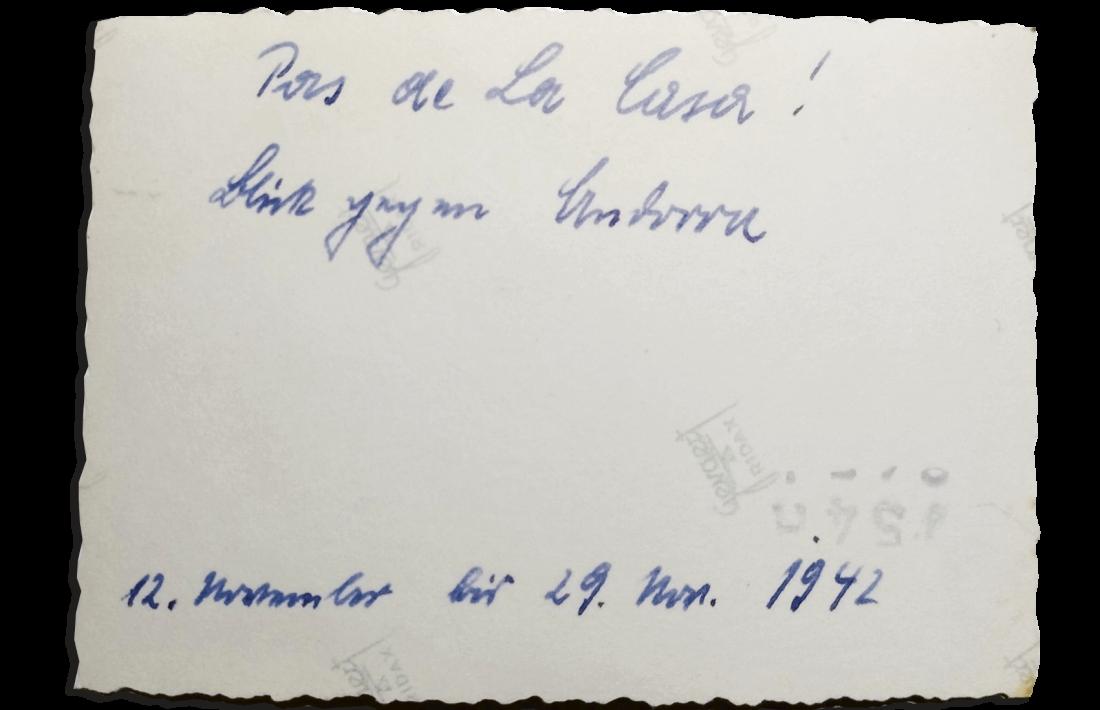 Pas de La Casa!
Blick gegen Andorra
Gevaert
RIDAX
12. November bis 29. Nov. 1942